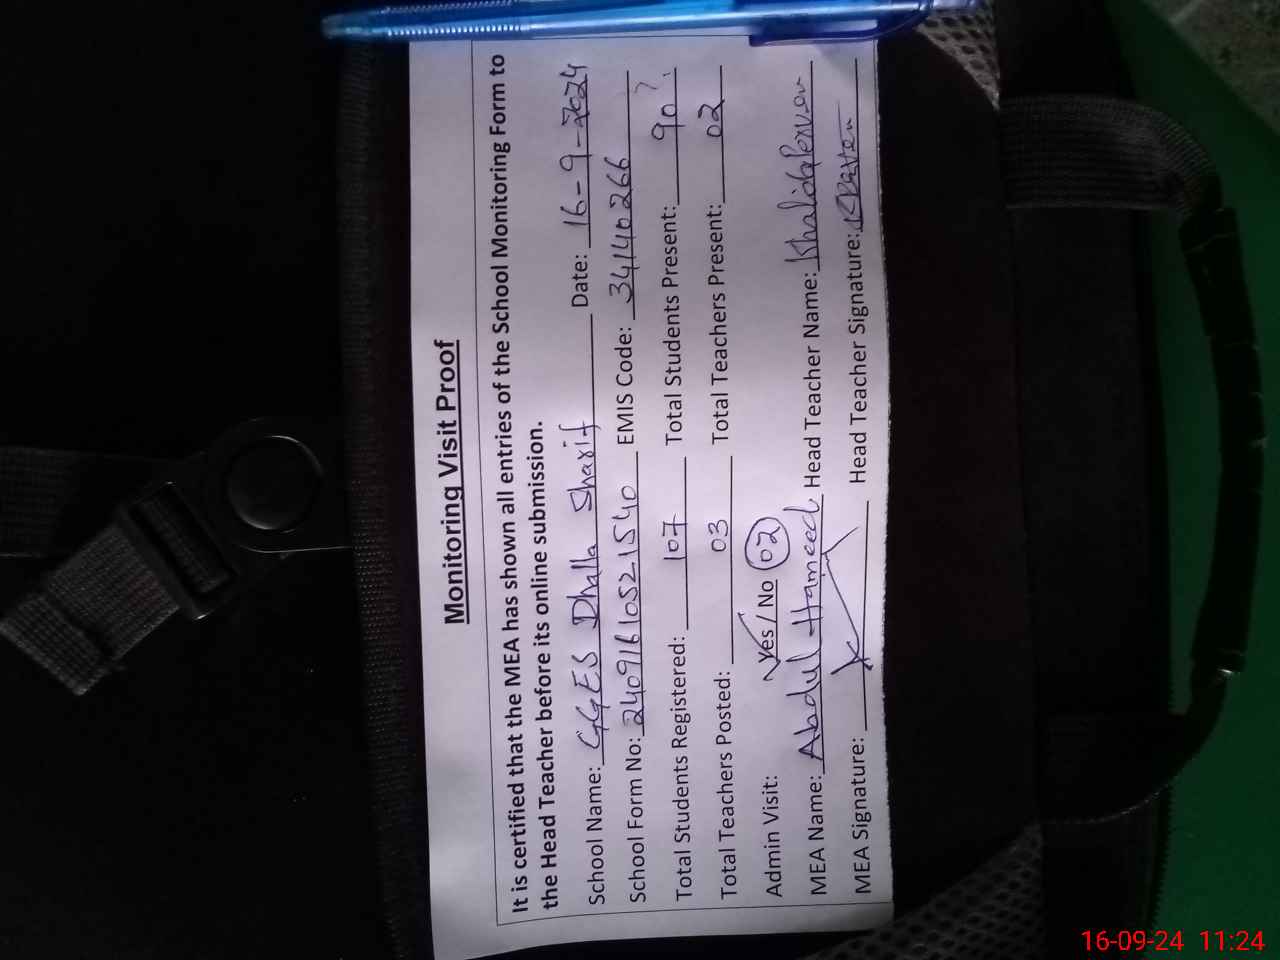 Monitoring Visit Proof
It is certified that the MEA has shown all entries of the School Monitoring Form to
the Head Teacher before its online submission.
School Name: GGES Dhalla Sharif Date: 16-9-2024
School Form No: 24091610521540 EMIS Code: 34140266
Total Students Registered: 107 Total Students Present: 90
Total Teachers Posted: 03 Total Teachers Present: 02
Admin Visit: Yes / No 02
MEA Name: Abdul Hameed Head Teacher Name: Khalida
MEA Signature: Head Teacher Signature:
16-09-24 11:24